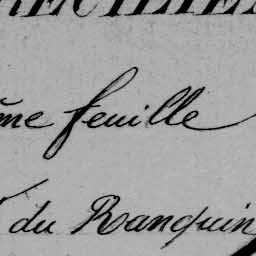 me feuille
du Ranquin